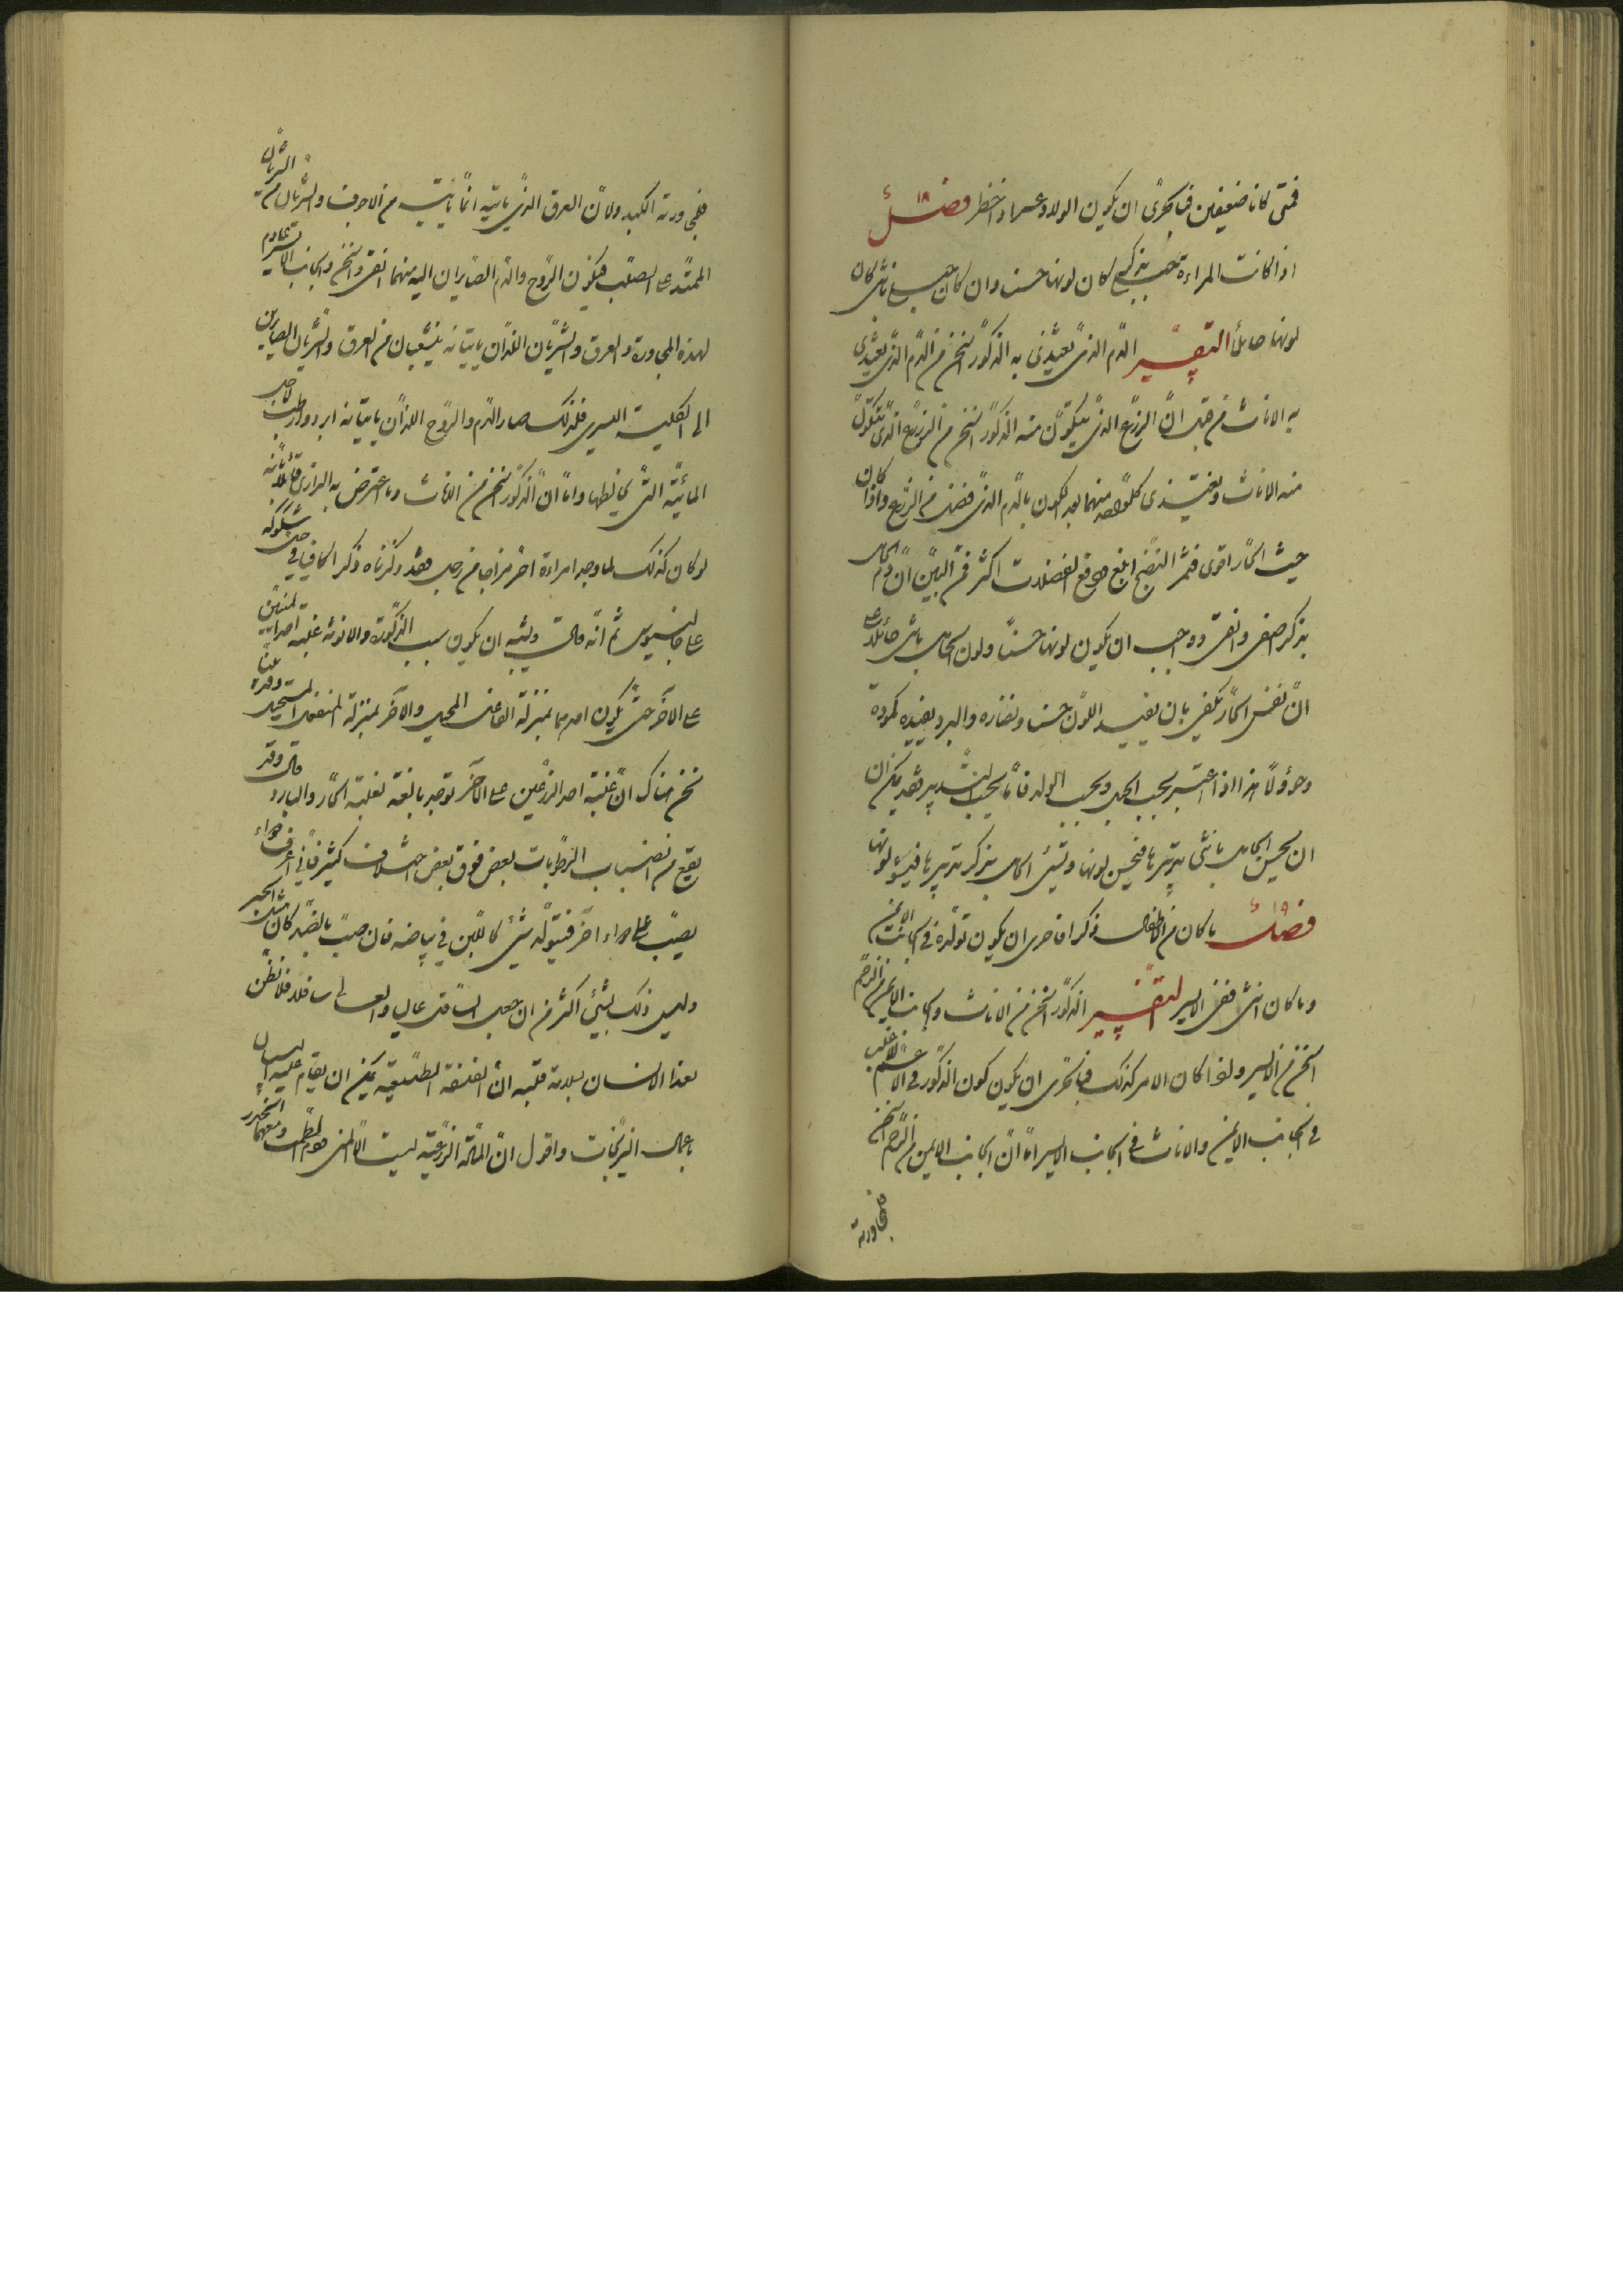 فمتى كانا ضعيفين فبالحرى ان يكون الولاد عسرا واخطر فصل ١٨
اذا كانت المراءة حبلى بذكر كان لونها حسنا وان كانت حبلى بانثى كان
لونها حائلا التفسير الدم الذى يغتذى به الذكور اسخن من الدم الذى يغتذى
به الاناث من قبل ان الزرع الذى يتكون منه الذكور اسخن من الزرع الذى تتكون
منه الاناث ويغتذى كل واحد منهما بعد الكون بالدم الذى فضل من الزرع واذا كان
حيث الحار اقوى فثم النضج ابلغ ودفع الفضلات اكثر فمن البين ان دم الحامل
بذكر اصفى وانقى وواجب ان يكون لونها حسنا ولون الحامل بانثى حائلا على
ان نفس الحار تكفى بان يفيد اللون حسنا ونضارة والبرد يفيده كمودة
وحؤولا هذا اذا اعتبر بحسب الحبل وبحسب الولد فاما بحسب التدبير فقد يمكن ان
ان يحسن الحامل بانثى تدبيرها فيحسن لونها وتسئ الحامل بذكر تدبيرها فيسوء لونها
فصل ١٩ ما كان من الاطفال ذكرا فاحرى ان يكون تولده فى الجانب الايمن
وما كان انثى ففى الايسر التفسير الذكور اسخن من الاناث والجانب الايمن من الرحم
اسخن من الايسر ولما كان الامر كذلك فبالحرى ان يكون كون الذكور فى الاعم الاغلب
فى الجانب الايمن والاناث فى الجانب الايسر اما ان الجانب الايمن من الرحم اسخن
فلمجاورته
فلمجاورته الكبد ولان العرق الذى ياتيه انما ياتيه من الاجوف والشريان من الشريان
الممتد على الصلب فيكون الروح والدم الصايران اليه منهما انقى واسخن والجانب الايسر عادم
لهذه المجاورة والعرق والشريان اللذان ياتيانه يتشعبان من العرق والشريان الصايرين
الى الكلية اليسرى فلذلك صار الدم والروح اللذان ياتيانه ابرد وارطب لاجل
المائية التى تخالطها واما ان الذكور اسخن من الاناث وما اعترض به الرازى قائلا بانه
لو كان كذلك لما وجد امراءة احر مزاجا من رجل فقد ذكرناه ذكر الكافيا فى حل شكوكه
على جالينوس ثم انه قال ويشبه ان يكون سبب الذكورة والانوثة غلبة احد المنيين
على الآخر حتى يكون احدهما بمنزلة الفاعل المحيل والآخر بمنزلة المنفعل المستحيل وقد بينا
نحن هناك ان غلبة احد الزرعين على الآخر توجد بالغة لغلبة الحار والبارد قال وقد
يقع من انصباب الرطوبات بعض فوق بعض اختلاف كثير فانى اعرف دواء
يصب على دواء اخر فيتولد شئ كاللبن فى بياضه فان صب بالضد كان مثل الحبر
وليس ذلك بشئ اكثر من ان جعل السافل عالى والعالى سافلا فلا تظن
بهذا الانسان بلادة قلبه ان الفلسفة الطبيعية يمكن ان يقام عليها البرهان
باعمال النيرنجات واقول ان المادة الزرعية ليست الا المنى ودم الطمث ومعهما